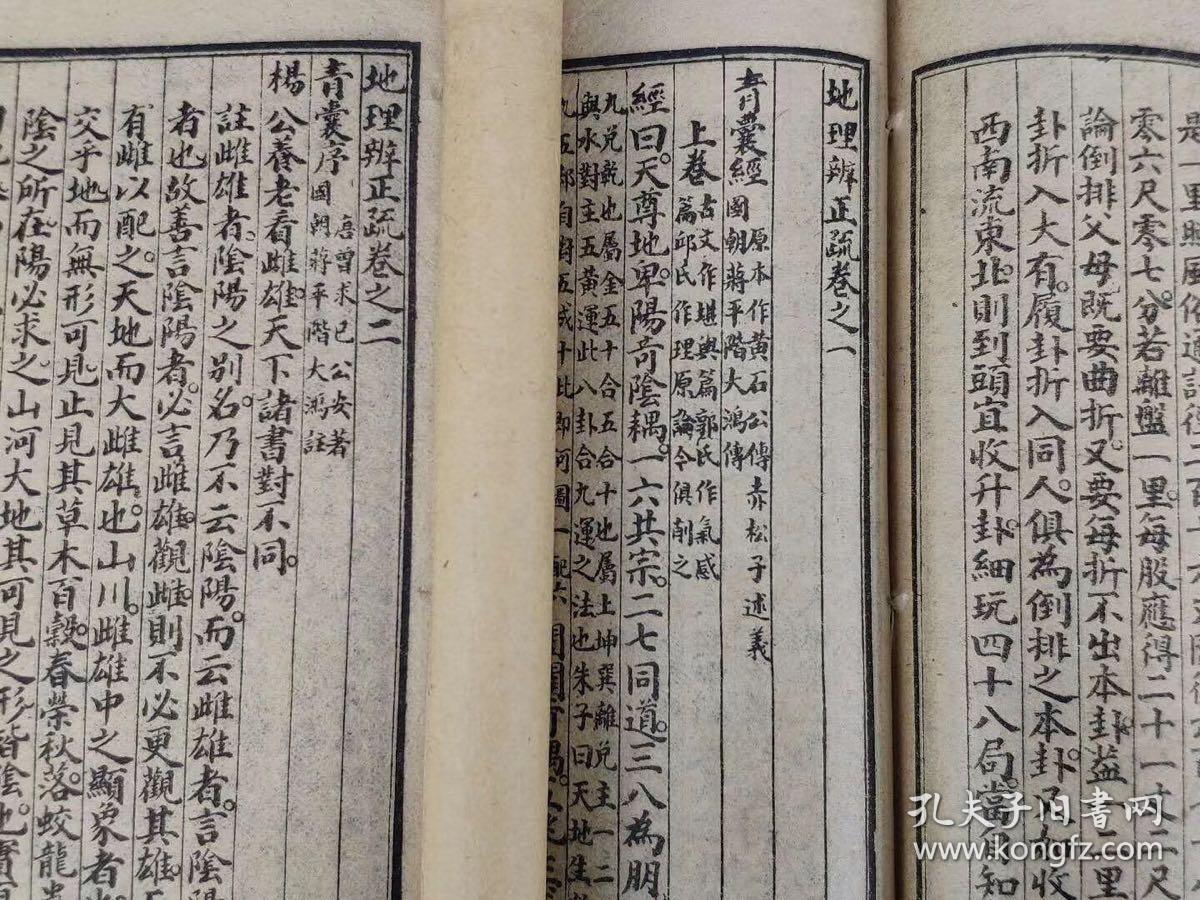 零六尺零七分若離盤一里每股應得二十一丈二尺
論倒排父母既要曲折又要每折不出本卦蓋一二里
卦折入大有履卦折入同人俱為倒排之本卦
西南流東北則到頭宜收升卦細玩四十八局當自知
地理辨正疏卷之一
青囊經
原本作黃石公傳赤松子述義
國朝蔣平階大鴻傳
上卷
古文作堪輿篇郭氏作氣感
篇邱氏作理原論今俱削之
經曰天尊地卑陽奇陰耦一六共宗二七同道三八為朋
九兌乾也屬金五十合五合十也屬上坤巽離兌主一二
與水對主五黃運此八卦合九運之法也朱子曰天地生
地理辨正疏卷之二
青囊序
唐曾求己公安著
國朝蔣平階大鴻註
楊公養老看雌雄天下諸書對不同
註雌雄者陰陽之別名乃不云陰陽而云雌雄者言陰陽
者也故善言陰陽者必言雌雄觀雌則不必更觀其雄
有雌以配之天地而大雌雄也山川雌雄中之顯象者
交乎地而無形可見止見其草木百穀春榮秋落蛟龍
陰之所在陽必求之山河大地其可見之形皆陰也實
孔夫子旧書网
www.kongfz.com